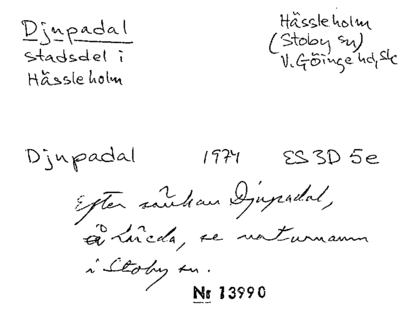 Djupadal
stadsdel i
Hässleholm
Hässleholm
(Stoby sn)
V. Göinge hd, Sk
Djupadal 1974 ES 3D 5e
Efter sänkan Djupadal,
se naturnamn
i Stoby sn.
Nr 13990